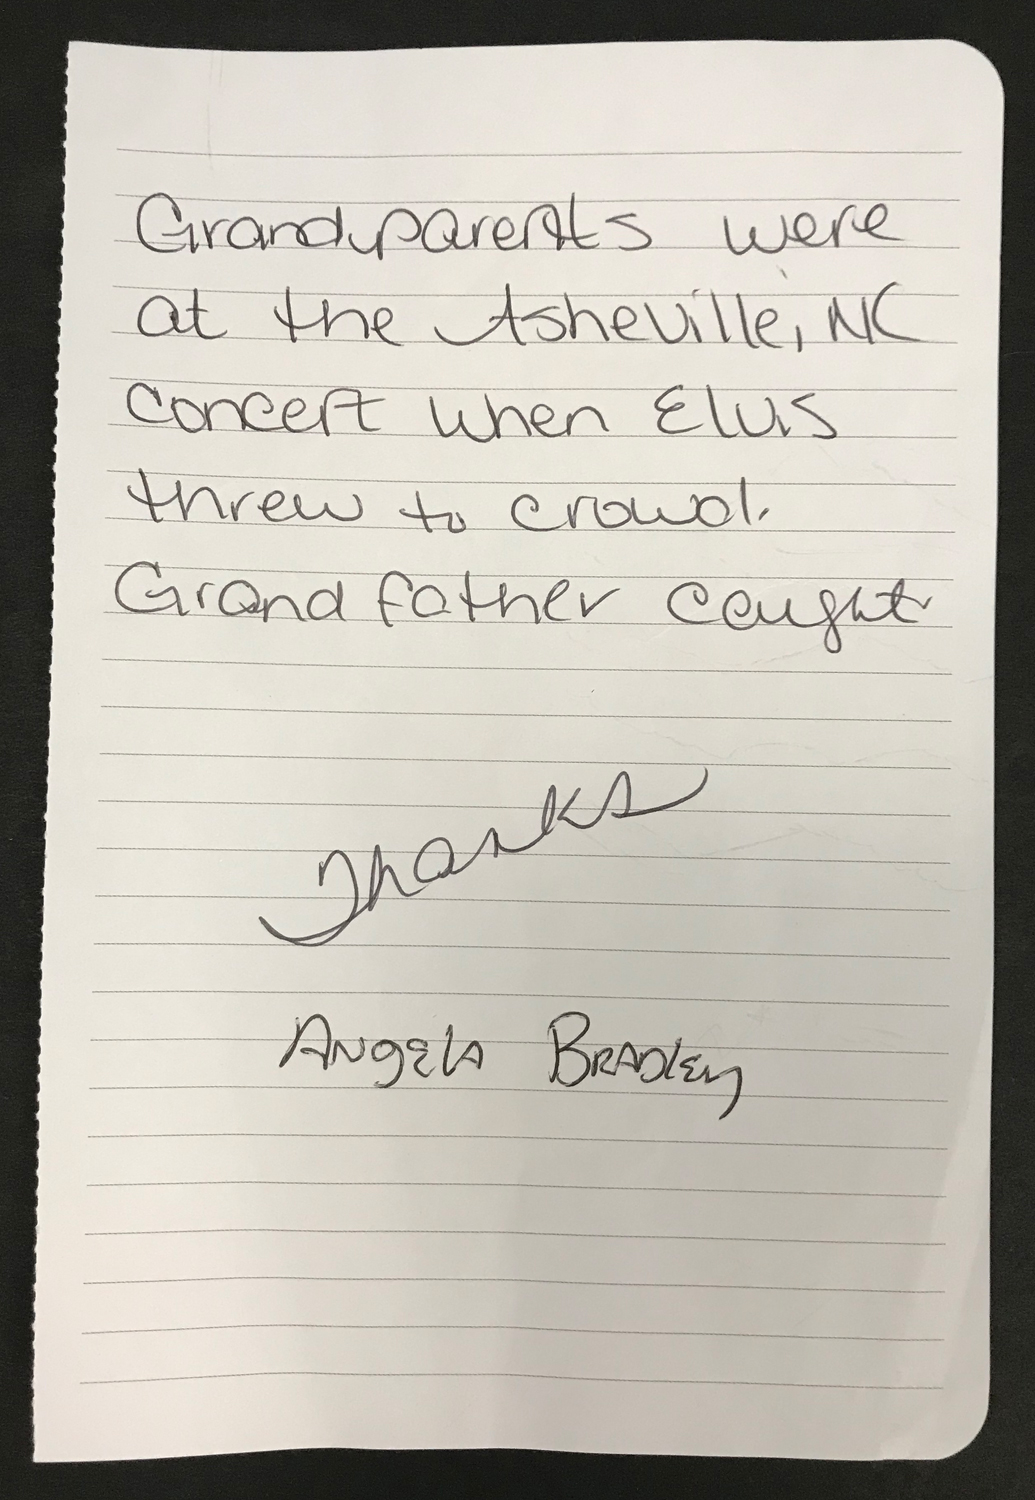 Grandparents were
at the Asheville, NC
concert when Elvis
threw to crowd.
Grand father caught
Thanks
Angela Bradley